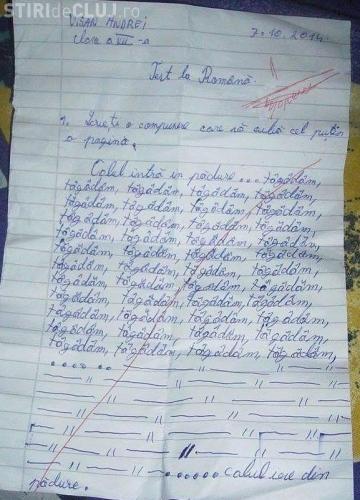 ȘTIRIdeCLUJ.ro
VIȘAN ANDREI
7.10.2014
clasa a VII-a
Test la Română.
1. Scrieți o compunere care să aibă cel puțin
o pagină.
Calul intră în pădure ... tăgădăm,
tăgădăm, tăgădăm, tăgădăm, tăgădăm,
tăgădăm, tăgădăm, tăgădăm, tăgădăm,
tăgădăm, tăgădăm, tăgădăm, tăgădăm,
tăgădăm, tăgădăm, tăgădăm, tăgădăm,
tăgădăm, tăgădăm, tăgădăm, tăgădăm,
tăgădăm, tăgădăm, tăgădăm, tăgădăm,
tăgădăm, tăgădăm, tăgădăm, tăgădăm,
tăgădăm, tăgădăm, tăgădăm, tăgădăm,
tăgădăm, tăgădăm, tăgădăm, tăgădăm,
tăgădăm, tăgădăm, tăgădăm, tăgădăm,
tăgădăm, tăgădăm, tăgădăm, tăgădăm,
......
— 〃 — 〃 — 〃 — 〃
— 〃 — 〃 — 〃 — 〃
— 〃 — 〃 — 〃 — 〃
— 〃 — 〃 — 〃 — 〃
— 〃 — 〃 — 〃 — 〃
— 〃 — 〃 ...... calul iese din
pădure.